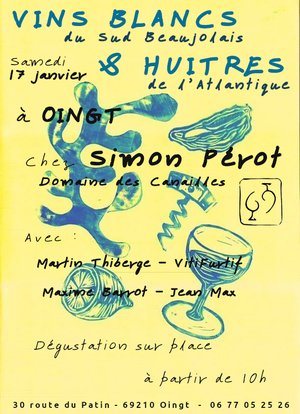 VINS BLANCS
du Sud Beaujolais
Samedi
17 janvier
& HUITRES
de l'Atlantique
à OINGT
Chez Simon Pérot
Domaine des Canailles
Avec :
Martin Thiberge - VitiFurtif
Maxime Barrot - Jean Max
Dégustation sur place
à partir de 10h
30 route du Patin - 69210 Oingt - 06 77 05 25 26